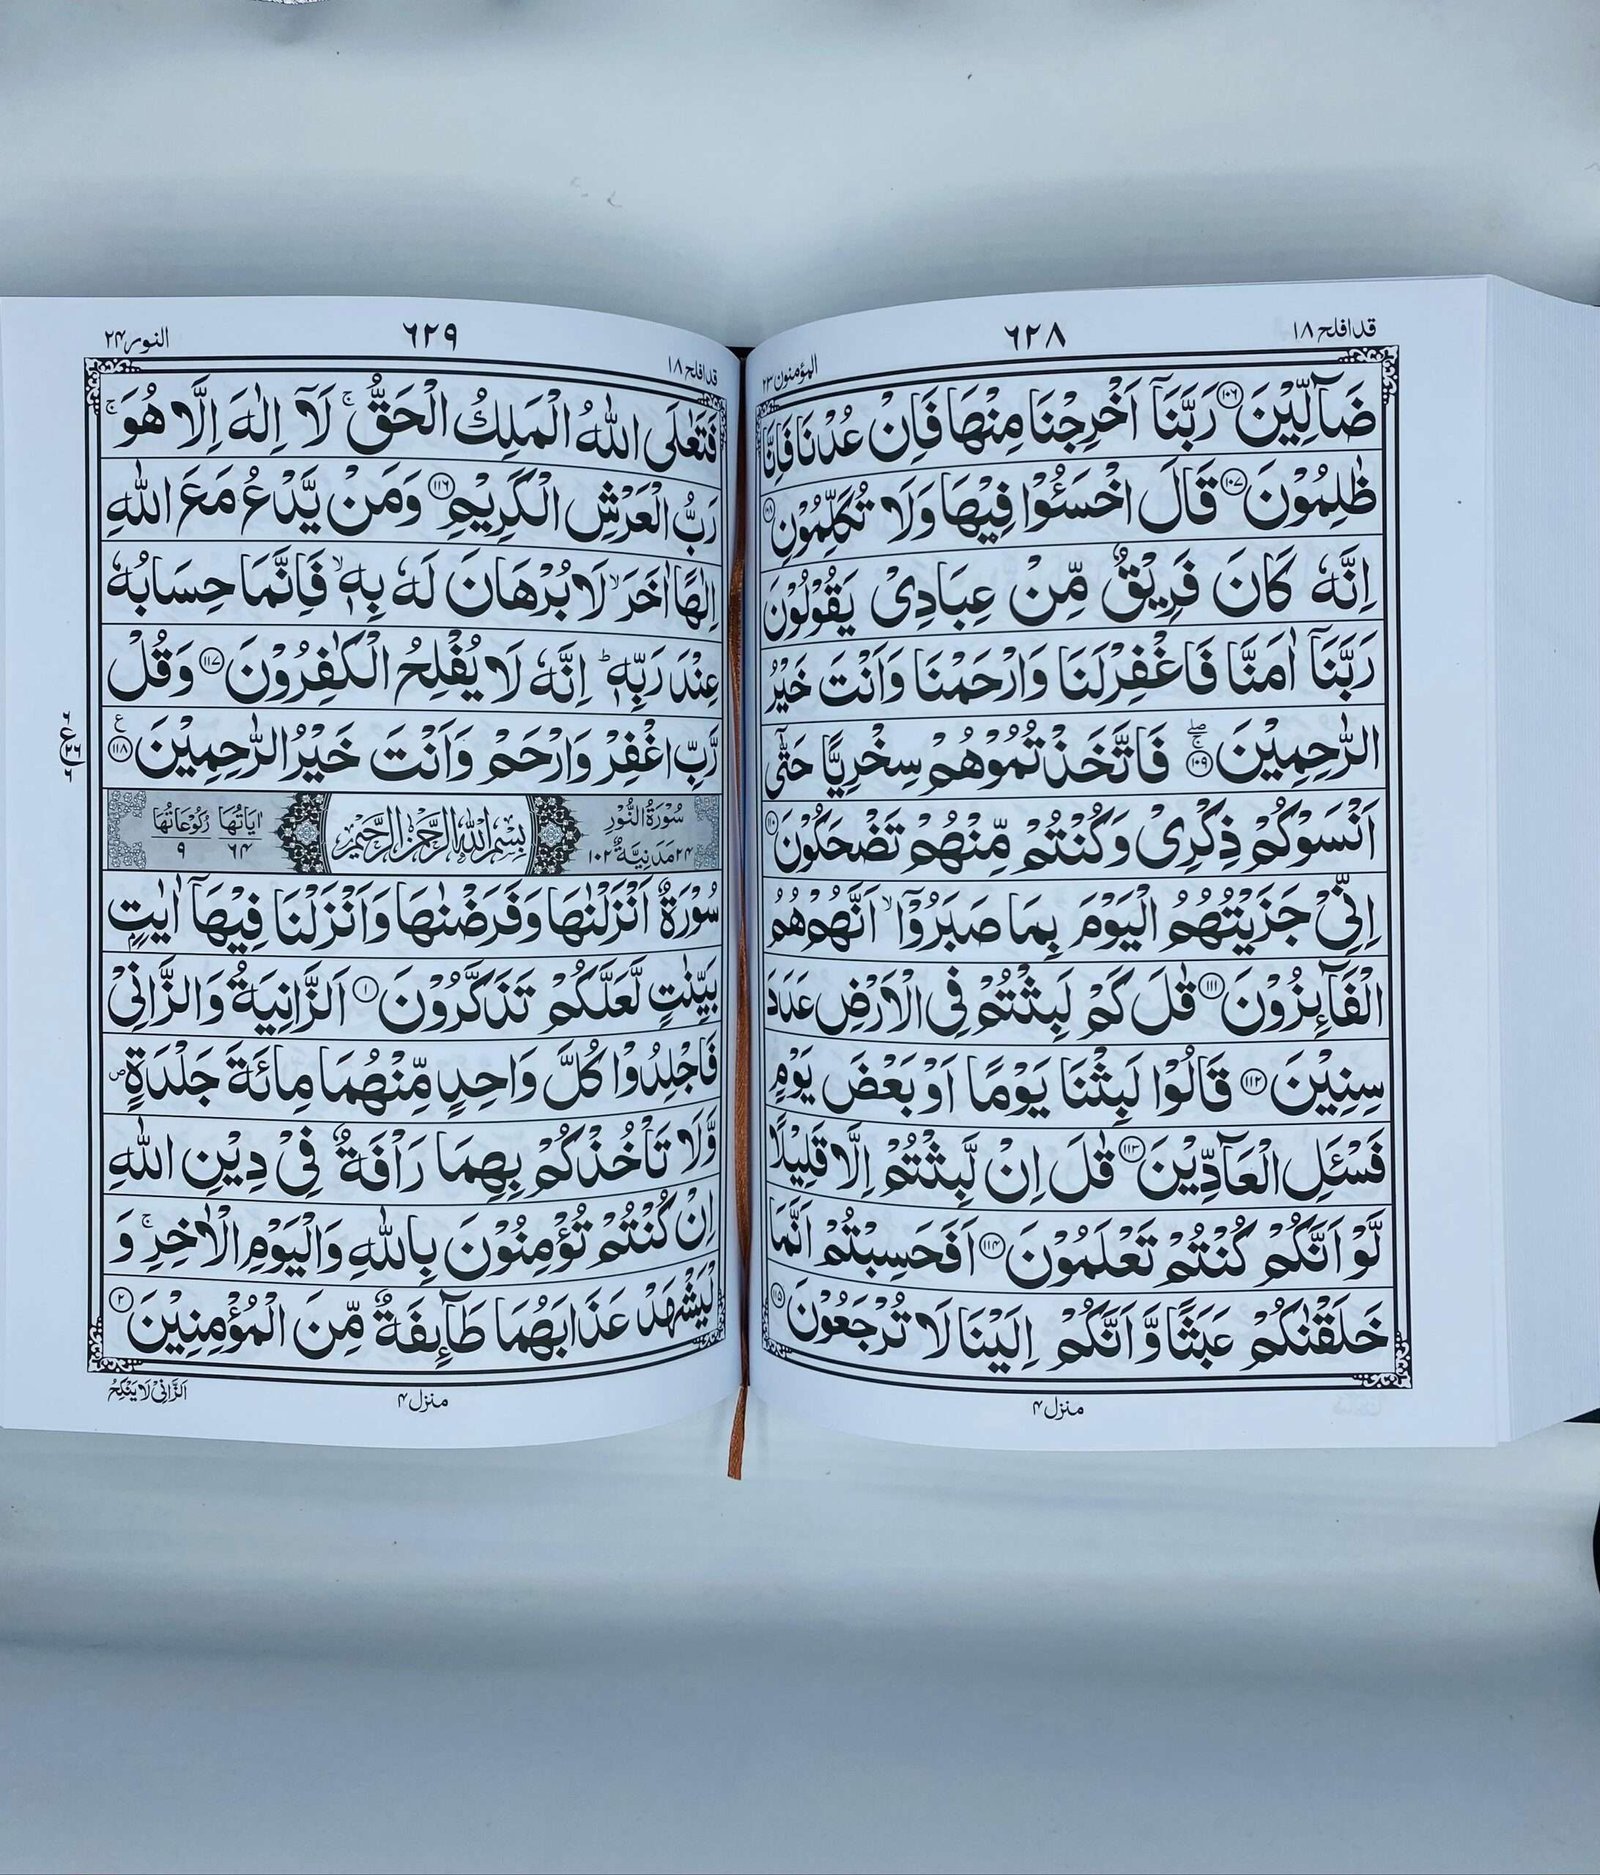 قد افلح ١٨
٦٢٨
المؤمنون ٢٣
ضَآلِّيْنَ ۝١٠٦ رَبَّنَآ اَخْرِجْنَا مِنْهَا فَاِنْ عُدْنَا فَاِنَّا
ظٰلِمُوْنَ ۝١٠٧ قَالَ اخْسَـُٔوْا فِيْهَا وَلَا تُكَلِّمُوْنِ ۝١٠٨
اِنَّهٗ كَانَ فَرِيْقٌ مِّنْ عِبَادِيْ يَقُوْلُوْنَ
رَبَّنَآ اٰمَنَّا فَاغْفِرْلَنَا وَارْحَمْنَا وَاَنْتَ خَيْرُ
الرّٰحِمِيْنَ ۝١٠٩ۚۖ فَاتَّخَذْتُمُوْهُمْ سِخْرِيًّا حَتّٰٓى
اَنْسَوْكُمْ ذِكْرِيْ وَكُنْتُمْ مِّنْهُمْ تَضْحَكُوْنَ ۝١١٠
اِنِّيْ جَزَيْتُهُمُ الْيَوْمَ بِمَا صَبَرُوْٓا ۙ اَنَّهُمْ هُمُ
الْفَآئِزُوْنَ ۝١١١ قٰلَ كَمْ لَبِثْتُمْ فِي الْاَرْضِ عَدَدَ
سِنِيْنَ ۝١١٢ قَالُوْا لَبِثْنَا يَوْمًا اَوْ بَعْضَ يَوْمٍ
فَسْـَٔلِ الْعَآدِّيْنَ ۝١١٣ قٰلَ اِنْ لَّبِثْتُمْ اِلَّا قَلِيْلًا
لَّوْ اَنَّكُمْ كُنْتُمْ تَعْلَمُوْنَ ۝١١٤ اَفَحَسِبْتُمْ اَنَّمَا
خَلَقْنٰكُمْ عَبَثًا وَّاَنَّكُمْ اِلَيْنَا لَا تُرْجَعُوْنَ ۝١١٥
منزل ٤
قد افلح ١٨
٦٢٩
النور ٢٤
فَتَعٰلَى اللّٰهُ الْمَلِكُ الْحَقُّ ۚ لَآ اِلٰهَ اِلَّا هُوَ ۚ
رَبُّ الْعَرْشِ الْكَرِيْمِ ۝١١٦ وَمَنْ يَّدْعُ مَعَ اللّٰهِ
اِلٰهًا اٰخَرَ ۙ لَا بُرْهَانَ لَهٗ بِهٖ ۙ فَاِنَّمَا حِسَابُهٗ
عِنْدَ رَبِّهٖ ؕ اِنَّهٗ لَا يُفْلِحُ الْكٰفِرُوْنَ ۝١١٧ وَقُلْ
رَّبِّ اغْفِرْ وَارْحَمْ وَاَنْتَ خَيْرُ الرّٰحِمِيْنَ ۝١١٨ ع
سُوْرَةُ النُّوْرِ
٢٤ مَدَنِيَّةٌ ١٠٢
بِسْمِ اللّٰهِ الرَّحْمٰنِ الرَّحِيْمِ
اٰيَاتُهَا ٦٤
رُكُوْعَاتُهَا ٩
سُوْرَةٌ اَنْزَلْنٰهَا وَفَرَضْنٰهَا وَاَنْزَلْنَا فِيْهَآ اٰيٰتٍۭ
بَيِّنٰتٍ لَّعَلَّكُمْ تَذَكَّرُوْنَ ۝١ اَلزَّانِيَةُ وَالزَّانِيْ
فَاجْلِدُوْا كُلَّ وَاحِدٍ مِّنْهُمَا مِائَةَ جَلْدَةٍ ص
وَّلَا تَاْخُذْكُمْ بِهِمَا رَاْفَةٌ فِيْ دِيْنِ اللّٰهِ
اِنْ كُنْتُمْ تُؤْمِنُوْنَ بِاللّٰهِ وَالْيَوْمِ الْاٰخِرِ ۚ وَ
لْيَشْهَدْ عَذَابَهُمَا طَآئِفَةٌ مِّنَ الْمُؤْمِنِيْنَ ۝٢
منزل ٤
اَلزَّانِيْ لَا يَنْكِحُ